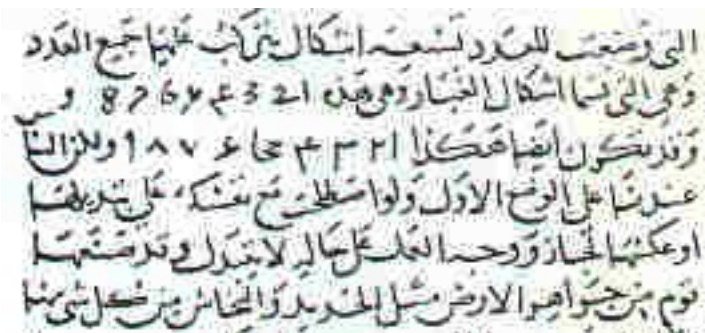 التى وضعت للعدد تسعة اشكال يتركب عليها جميع العدد
وهي التى تسما اشكال الغبار وهى هذه
وقد تكون ايضا هكذا ولكن النا
عندنا على الوضع الاول ولو اصطلحت مع نفسك على تبديلها
او عكسها لجاز ووجه العمل على حاله لا يتبدل وقد صنعها
قوم من جواهر الارض مثل الحديد والنحاس من كل شى منها